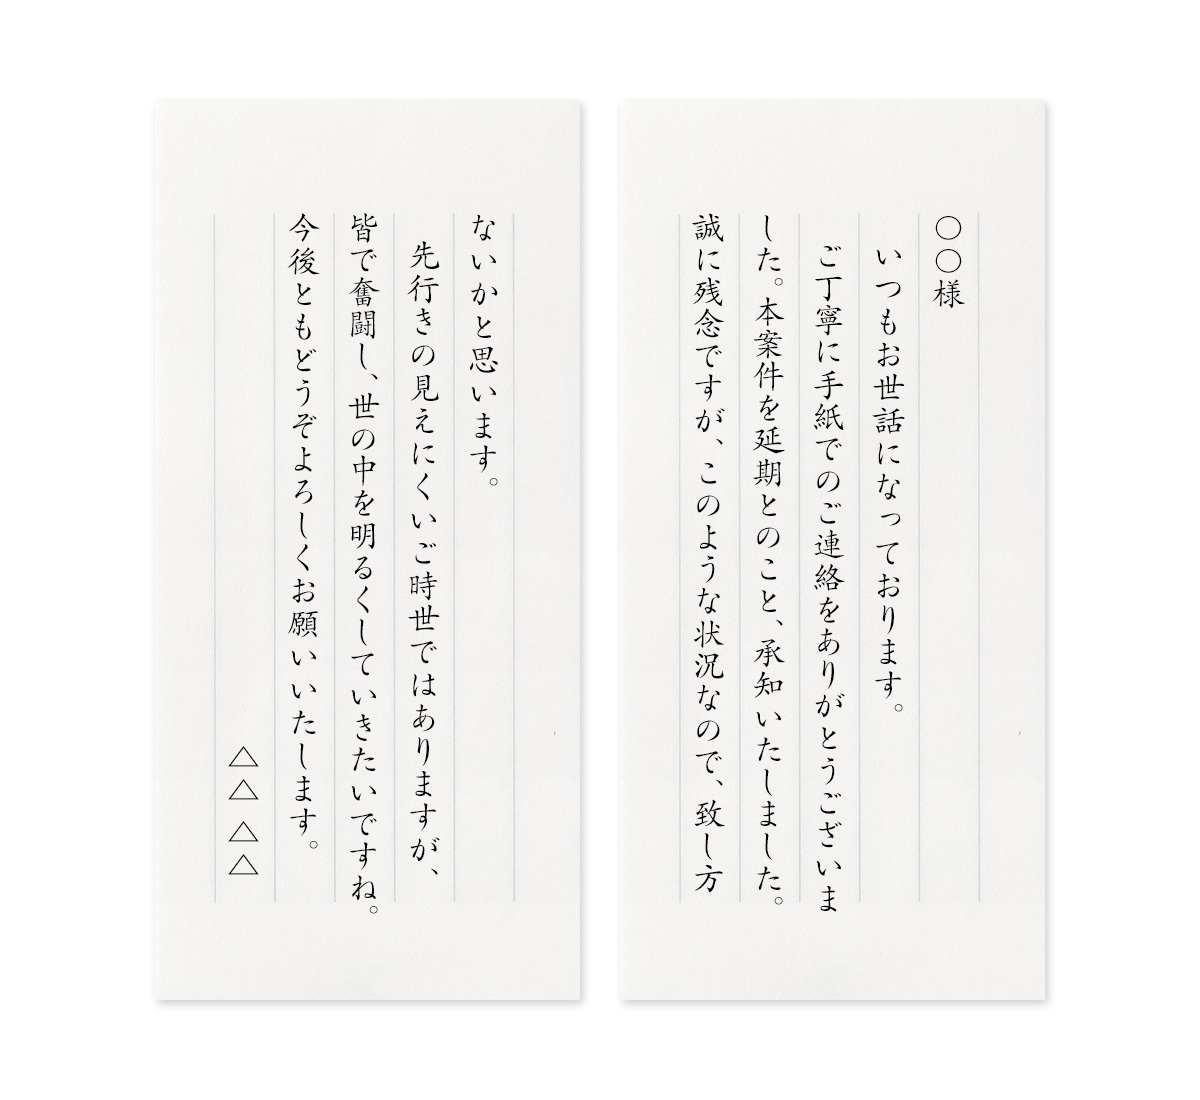 〇〇様
いつもお世話になっております。
ご丁寧に手紙でのご連絡をありがとうございま
した。本案件を延期とのこと、承知いたしました。
誠に残念ですが、このような状況なので、致し方
ないかと思います。
先行きの見えにくいご時世ではありますが、
皆で奮闘し、世の中を明るくしていきたいですね。
今後ともどうぞよろしくお願いいたします。
△△ △△